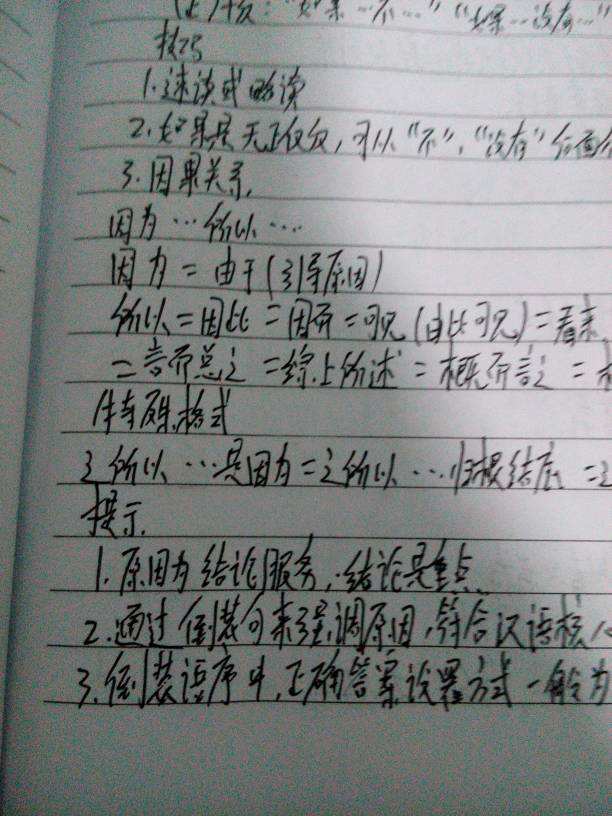 ：“如果…不…”“如果…没有…”
技巧
1.速读或略读
2.如果是无正仅反，可以“不”，“没有”
3.因果关系.
因为…所以…
因为=由于(引导原因)
所以=因此=因而=可见(由此可见)=看来
=言而总之=综上所述=概而言之=
特殊格式
之所以…是因为=之所以…归根结底=之
提示.
1.原因为结论服务,结论是重点
2.通过倒装句来强调原因,符合汉语核心
3.倒装语序中,正确答案设置方式一般为